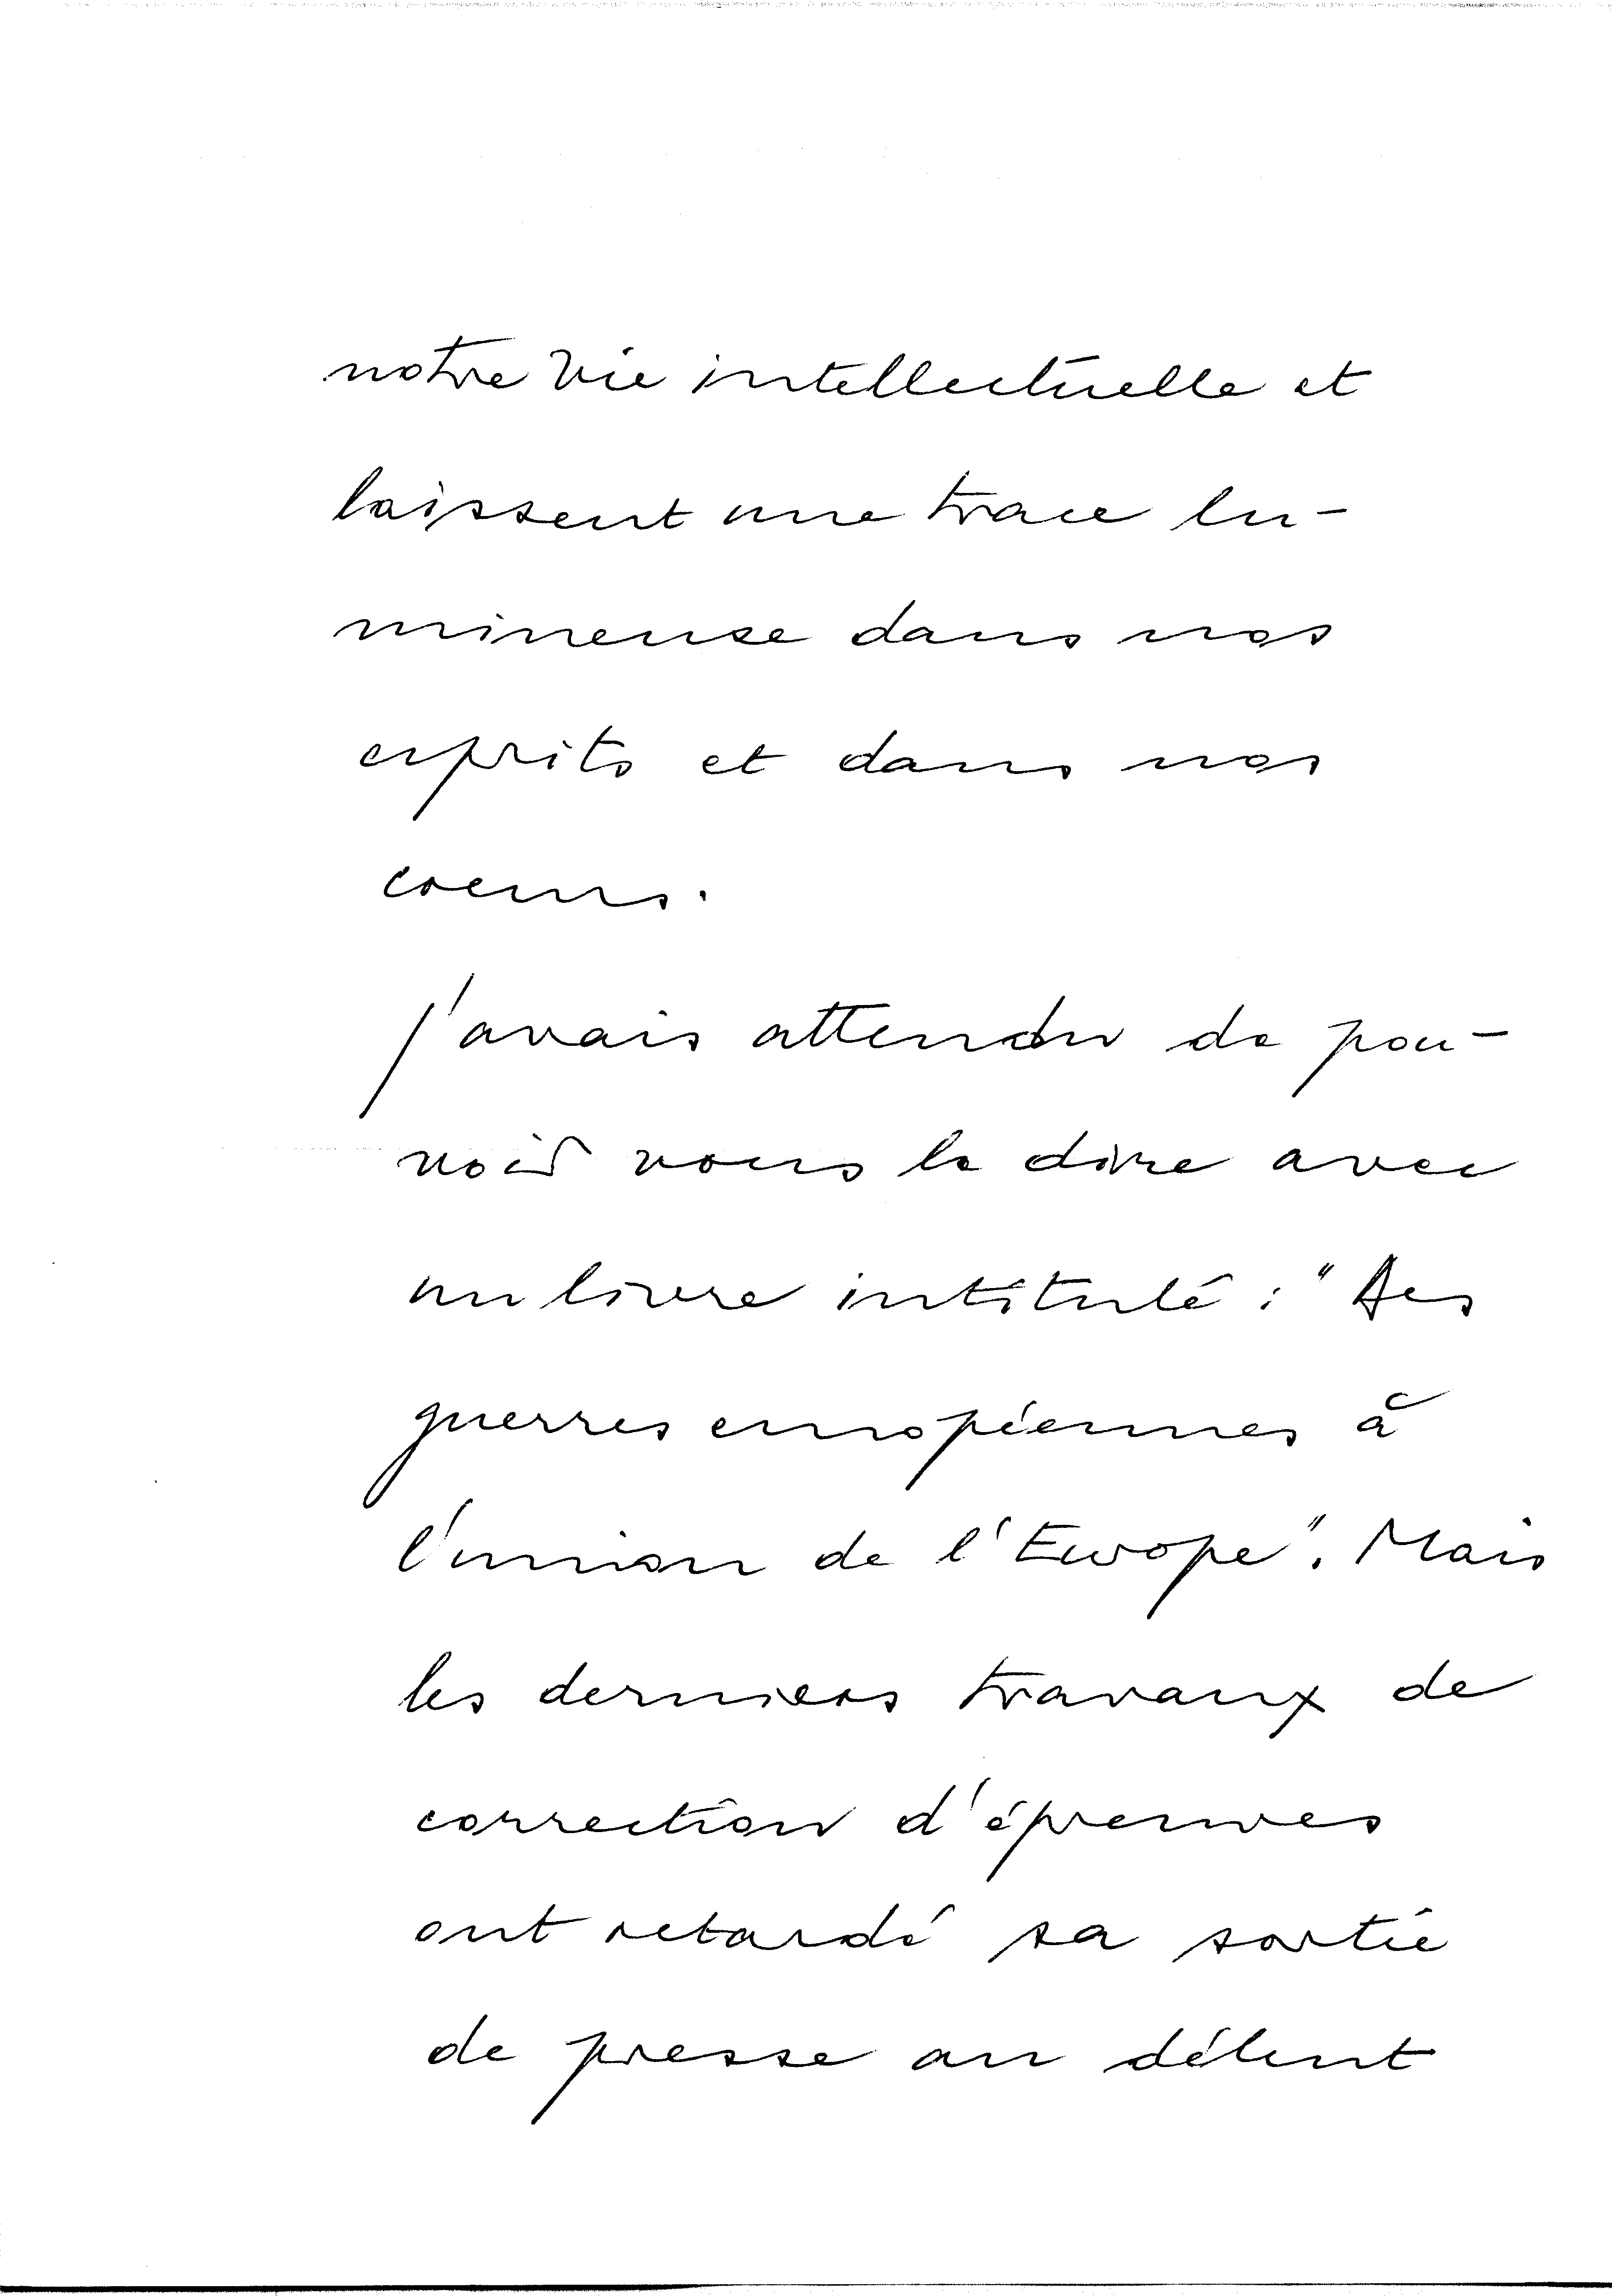 notre vie intellectuelle et
laissent une trace lu-
mineuse dans nos
esprits et dans nos
coeurs.
j'avais attendu de pou-
voir vous le dire avec
un livre intitulé : "Des
guerres européennes à
l'union de l'Europe". Mais
les derniers travaux de
correction d'épreuves
ont retardé sa sortie
de presse au début